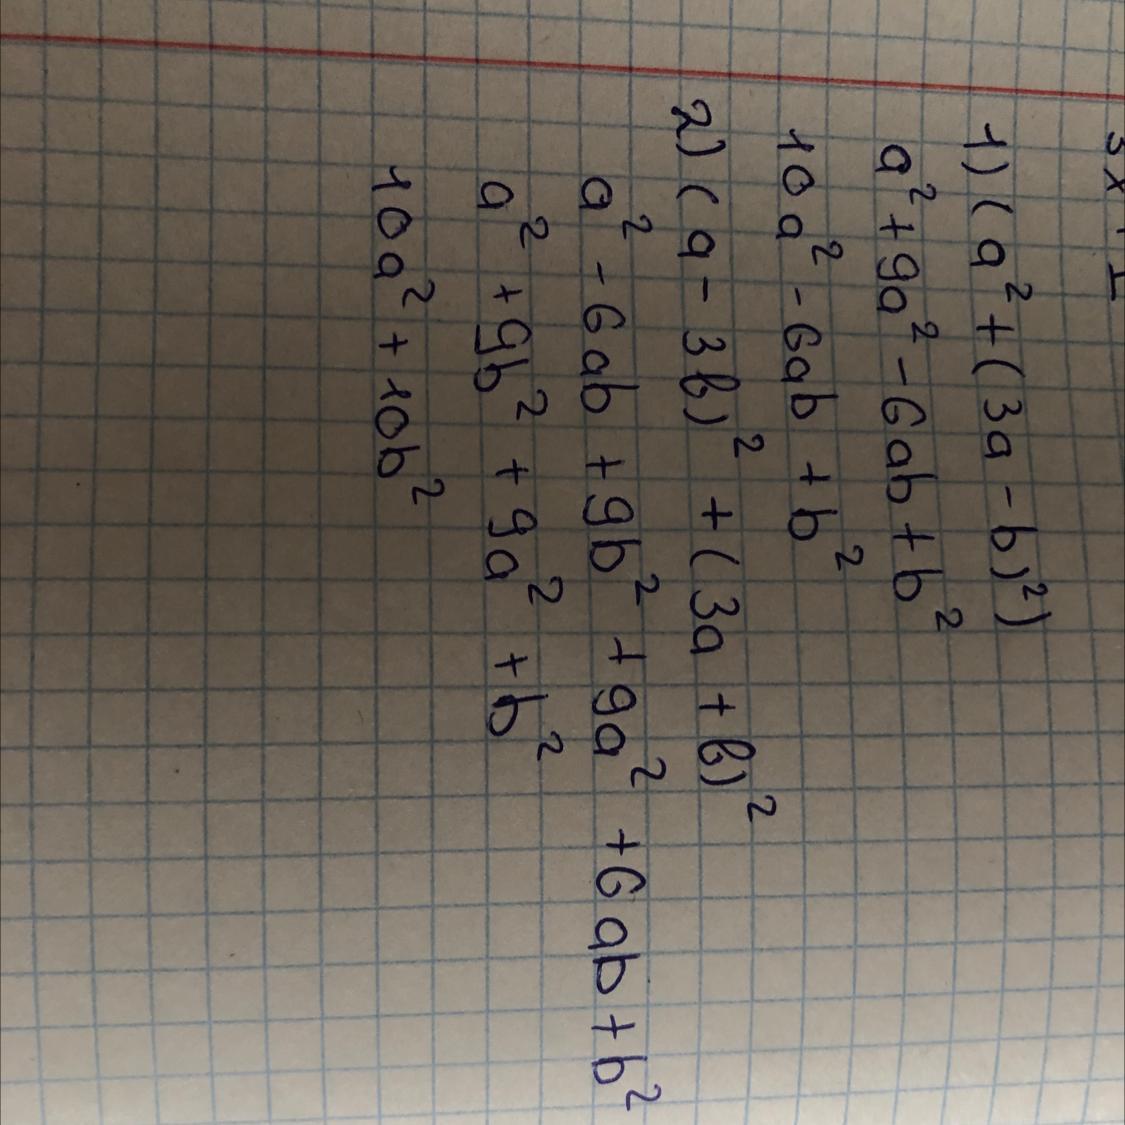 1) (a² + (3a - b)²)
a² + 9a² - 6ab + b²
10a² - 6ab + b²
2) (a - 3b)² + (3a + b)²
a² - 6ab + 9b² + 9a² + 6ab + b²
a² + 9b² + 9a² + b²
10a² + 10b²